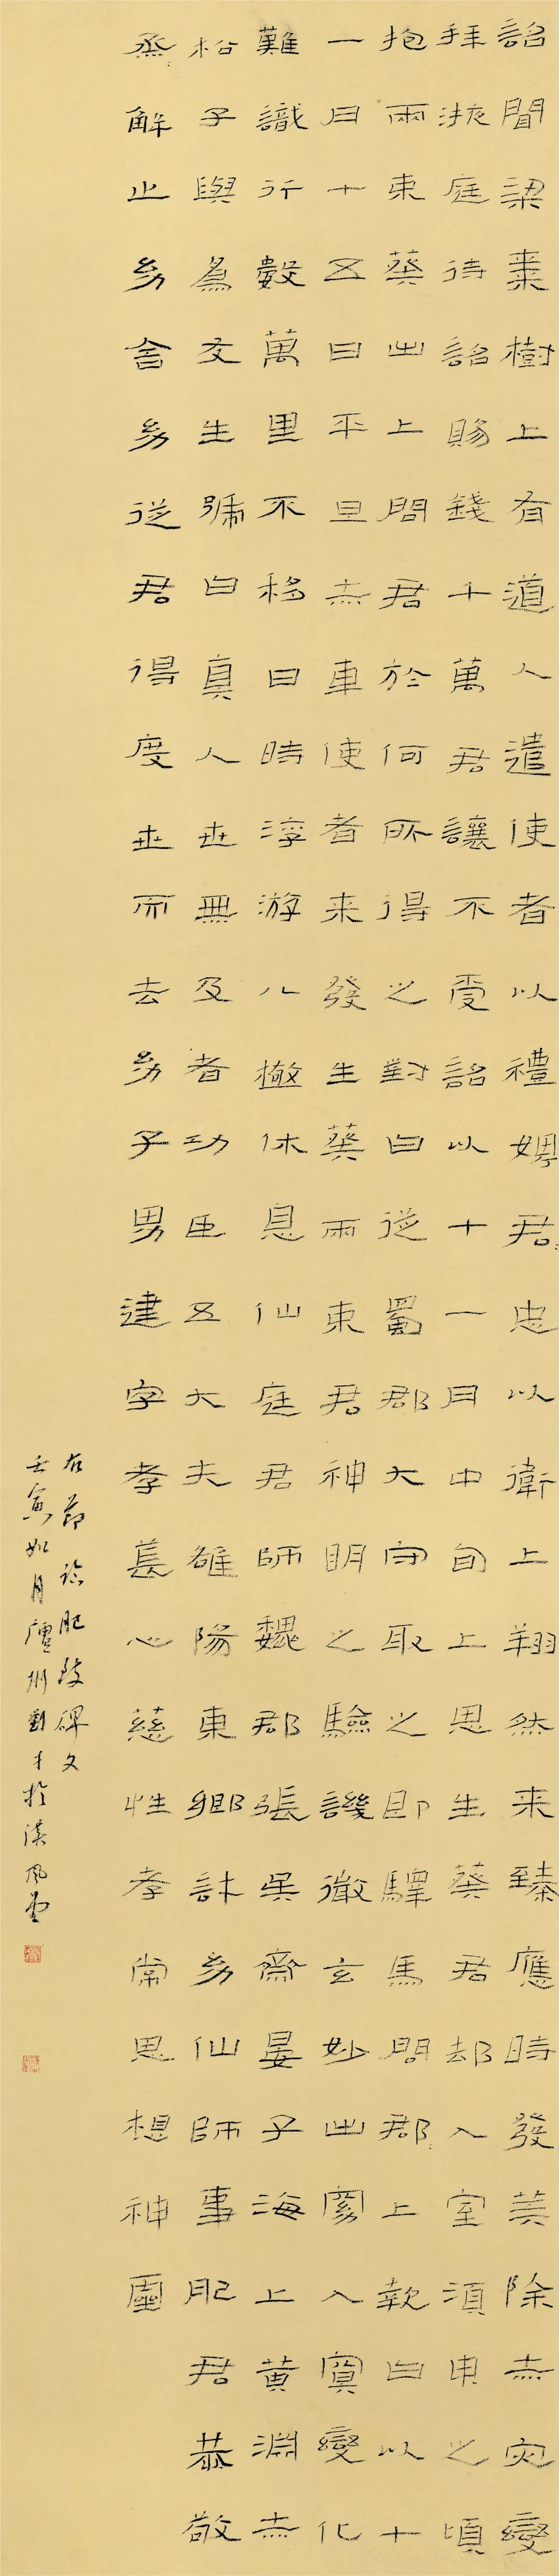 詔聞梁棗樹上有道人遣使者以禮娉君忠以衛上翔然来臻應時發筭除去灾變
拜掖庭待詔賜錢千萬君讓不受詔以十一月中旬上思生葵君却入室須臾之頃
抱兩束葵出上問君於何所得之對曰從蜀郡大守取之即驛馬問郡郡上報曰以十
一月十五日平旦赤車使者来發生葵兩束君神明之驗譏徹玄妙出窈入冥變化
難識行數萬里不移日時浮游八極休息仙庭君師魏郡張吳齊晏子海上黃淵赤
松子與為友生號曰真人世無及者功臣五大夫雒陽東鄉許幼仙師事肥君恭敬
烝烝解止幼舍幼從君得度世而去幼子男建字孝萇心慈性孝常思想神靈
右節臨肥致碑文
壬寅如月廬州劉才於漢風堂